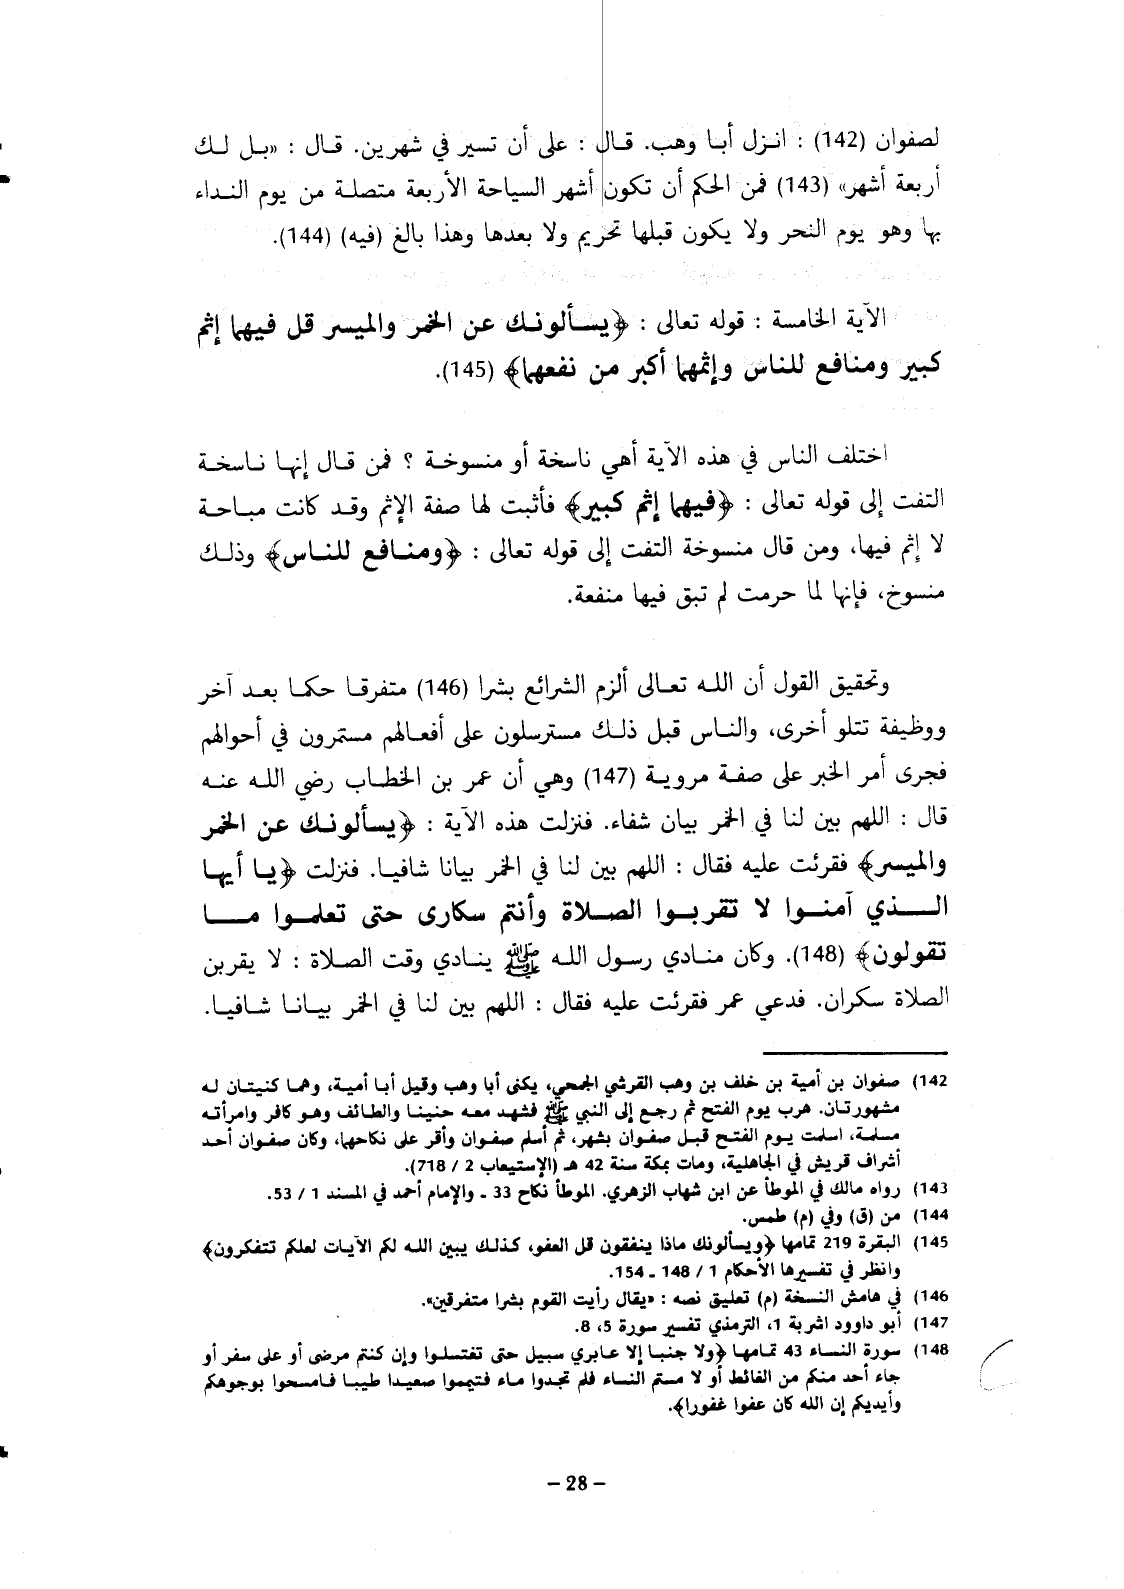 لصفوان (142) : انزل أبا وهب. قال : على أن تسير في شهرين. قال : «بل لك
أربعة أشهر» (143) فمن الحكم أن تكون أشهر السياحة الأربعة متصلة من يوم النداء
بها وهو يوم النحر ولا يكون قبلها تحريم ولا بعدها وهذا بالغ (فيه) (144).
الآية الخامسة : قوله تعالى : ﴿يسألونك عن الخمر والميسر قل فيهما إثم
كبير ومنافع للناس وإثمهما أكبر من نفعهما﴾ (145).
اختلف الناس في هذه الآية أهي ناسخة أو منسوخة ؟ فمن قال إنها ناسخة
التفت إلى قوله تعالى : ﴿فيهما إثم كبير﴾ فأثبت لها صفة الإثم وقد كانت مباحة
لا إثم فيها، ومن قال منسوخة التفت إلى قوله تعالى : ﴿ومنافع للناس﴾ وذلك
منسوخ، فإنها لما حرمت لم تبق فيها منفعة.
وتحقيق القول أن الله تعالى ألزم الشرائع بشرا (146) متفرقا حكما بعد آخر
ووظيفة تتلو أخرى، والناس قبل ذلك مسترسلون على أفعالهم مستمرون في أحوالهم
فجرى أمر الخبر على صفة مروية (147) وهي أن عمر بن الخطاب رضي الله عنه
قال : اللهم بين لنا في الخمر بيان شفاء. فنزلت هذه الآية : ﴿يسألونك عن الخمر
والميسر﴾ فقرئت عليه فقال : اللهم بين لنا في الخمر بيانا شافيا. فنزلت ﴿يا أيها
الذي آمنوا لا تقربوا الصلاة وأنتم سكارى حتى تعلموا ما
تقولون﴾ (148). وكان منادي رسول الله ﷺ ينادي وقت الصلاة : لا يقربن
الصلاة سكران. فدعي عمر فقرئت عليه فقال : اللهم بين لنا في الخمر بيانا شافيا.
142) صفوان بن أمية بن خلف بن وهب القرشي الجمحي، يكنى أبا وهب وقيل أبا أمية، وهما كنيتان له
مشهورتان. هرب يوم الفتح ثم رجع إلى النبي ﷺ فشهد معه حنينا والطائف وهو كافر وامرأته
مسلمة، اسلمت يوم الفتح قبل صفوان بشهر، ثم أسلم صفوان وأقر على نكاحهما، وكان صفوان أحد
أشراف قريش في الجاهلية، ومات بمكة سنة 42 هـ (الإستيعاب 2 / 718).
143) رواه مالك في الموطأ عن ابن شهاب الزهري. الموطأ نكاح 33 ـ والإمام أحمد في المسند 1 / 53.
144) من (ق) وفي (م) طمس.
145) البقرة 219 تمامها ﴿ويسألونك ماذا ينفقون قل العفو، كذلك يبين الله لكم الآيات لعلكم تتفكرون﴾
وانظر في تفسيرها الأحكام 1 / 148 ـ 154.
146) في هامش النسخة (م) تعليق نصه : «يقال رأيت القوم بشرا متفرقين».
147) أبو داوود اشربة 1، الترمذي تفسير سورة 5، 8.
148) سورة النساء 43 تمامها ﴿ولا جنبا إلا عابري سبيل حتى تغتسلوا وإن كنتم مرضى أو على سفر أو
جاء أحد منكم من الغائط أو لا مستم النساء فلم تجدوا ماء فتيمموا صعيدا طيبا فامسحوا بوجوهكم
وأيديكم إن الله كان عفوا غفورا﴾.
– 28 –